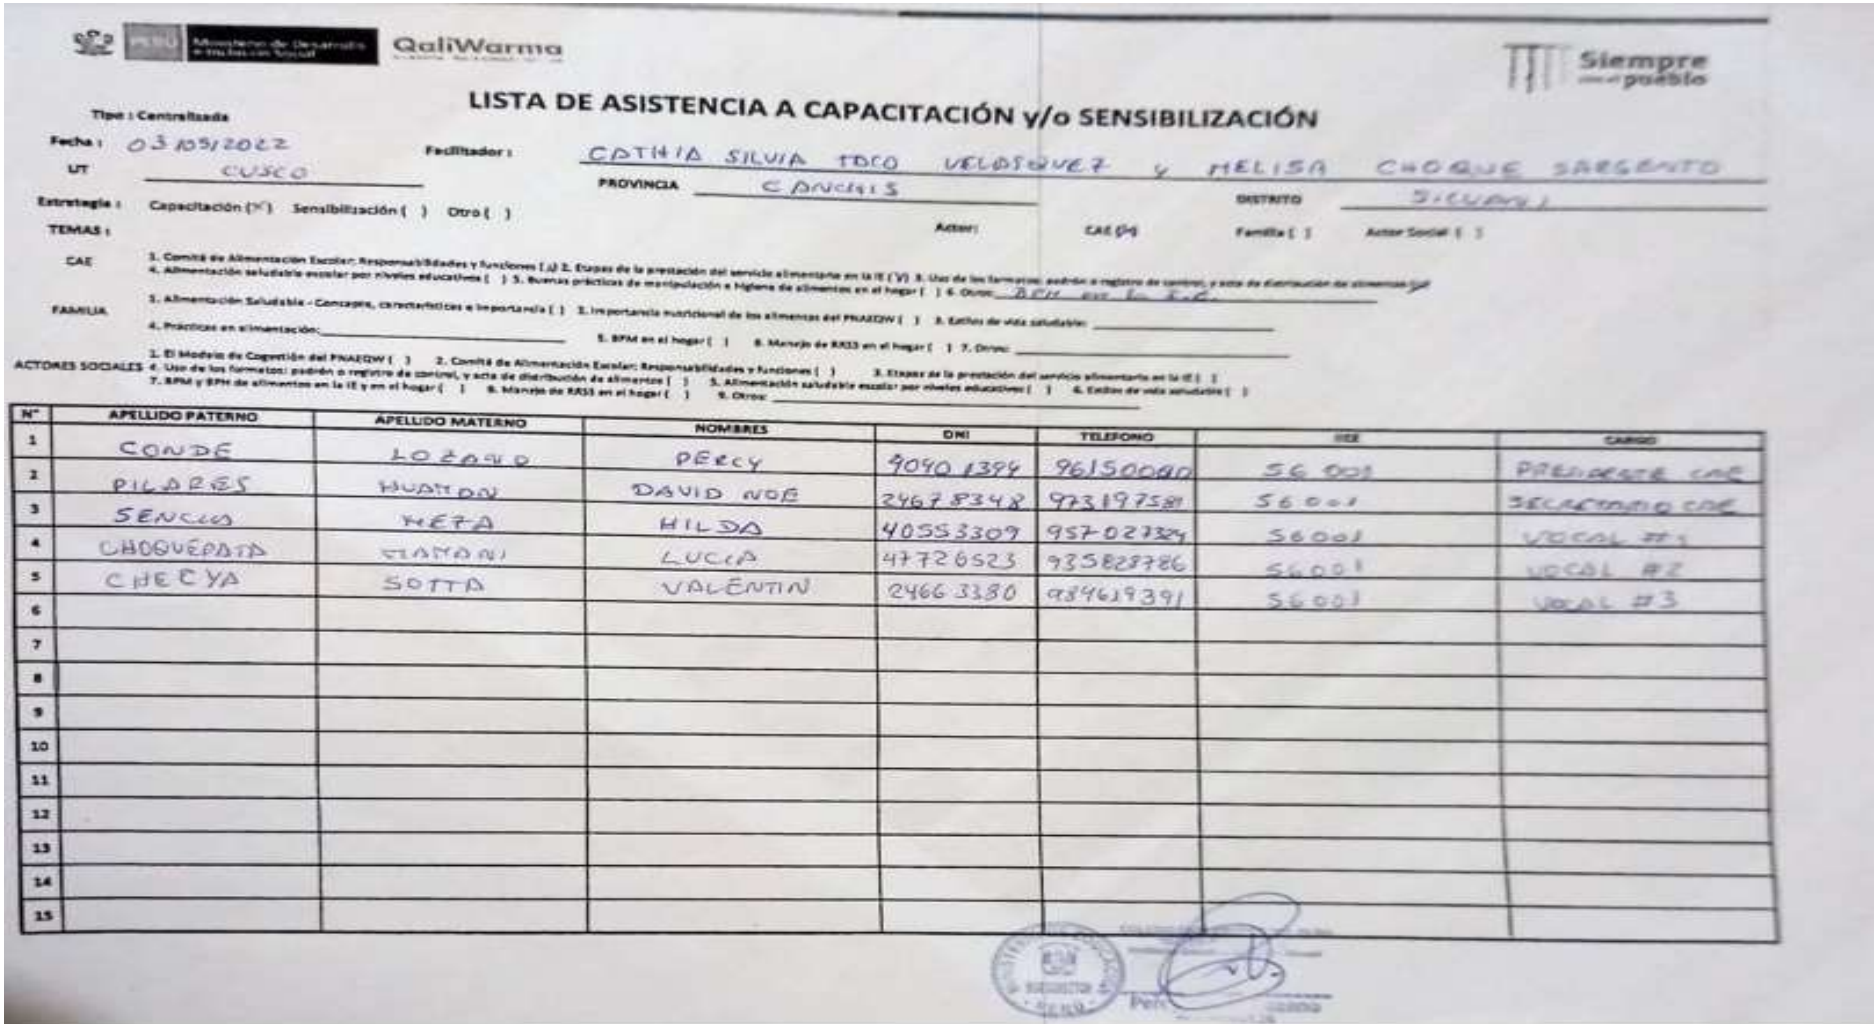 PERÚ Ministerio de Desarrollo e Inclusión Social QaliWarma
Siempre con el pueblo
LISTA DE ASISTENCIA A CAPACITACIÓN y/o SENSIBILIZACIÓN
Tipo : Centralizada
Fecha : 03/05/2022 Facilitador : CATHIA SILVIA TOCO VELASQUEZ y MELISA CHOQUE SARGENTO
UT CUSCO PROVINCIA CANCHIS DISTRITO SICUANI
Estrategia : Capacitación (X) Sensibilización ( ) Otro ( ) Actor: CAE (X) Familia ( ) Actor Social ( )
TEMAS :
CAE 1. Comité de Alimentación Escolar: Responsabilidades y funciones ( ) 2. Etapas de la prestación del servicio alimentario en la IE (V) 3. Uso de los formatos: padrón o registro de control, y acta de distribución de alimentos
4. Alimentación saludable escolar por niveles educativos ( ) 5. Buenas prácticas de manipulación e higiene de alimentos en el hogar ( ) 6. Otros:
FAMILIA 1. Alimentación Saludable - Concepto, características e importancia ( ) 2. Importancia nutricional de los alimentos del PNAEQW ( ) 3. Estilos de vida saludable:
4. Prácticas en alimentación: 5. BPM en el hogar ( ) 6. Manejo de RRSS en el hogar ( ) 7. Otros:
ACTORES SOCIALES 1. El Modelo de Cogestión del PNAEQW ( ) 2. Comité de Alimentación Escolar: Responsabilidades y funciones ( ) 3. Etapas de la prestación del servicio alimentario en la IE ( )
4. Uso de los formatos: padrón o registro de control, y acta de distribución de alimentos ( ) 5. Alimentación saludable escolar por niveles educativos ( ) 6. Estilos de vida saludable ( )
7. BPM y BPH de alimentos en la IE y en el hogar ( ) 8. Manejo de RRSS en el hogar ( ) 9. Otros:
N° APELLIDO PATERNO APELLIDO MATERNO NOMBRES DNI TELEFONO IIEE CARGO
1 CONDE LOZANO PERCY 56001 PRESIDENTE CAE
2 PILARES HUAMAN DAVID NOE 24678348 56001 SECRETARIO CAE
3 SENCIA MEZA HILDA 40553309 957027324 56001 VOCAL #1
4 CHOQUEPATA MAMANI LUCIA 47726523 56001 VOCAL #2
5 CHECYA SOTTA VALENTIN 24663380 56001 VOCAL #3
6
7
8
9
10
11
12
13
14
15
MINISTERIO DE EDUCACION
PERÚ